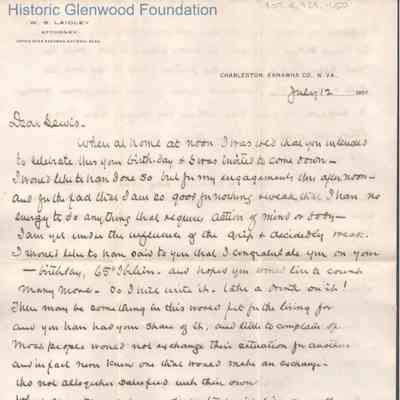 Historic Glenwood Foundation
W. S. LAIDLEY
ATTORNEY
OFFICE OVER KANAWHA NATIONAL BANK
CHARLESTON, KANAWHA CO., W. VA.
July 12
Dear Lewis.
When at home at noon I was told that you intended
to celebrate this your birth-day & I was invited to come down—
I would like to have done so but for my engagements this afternoon—
and for the fact that I am so good for nothing & weak that I have no
energy to do anything that requires action of mind or body—
I am yet under the influence of the grip & decidedly weak.
I would like to have said to you that I congratulate you on your
— birthday, 65th I believe. and hope you would live to count
many more. So I will write it. take a drink on it!
There may be something in this world yet for the living for
and you have had your share of it, and little to complain of
Most people would not exchange their situation for another
and in fact never knew one that would make an exchange—
tho not altogether satisfied with their own